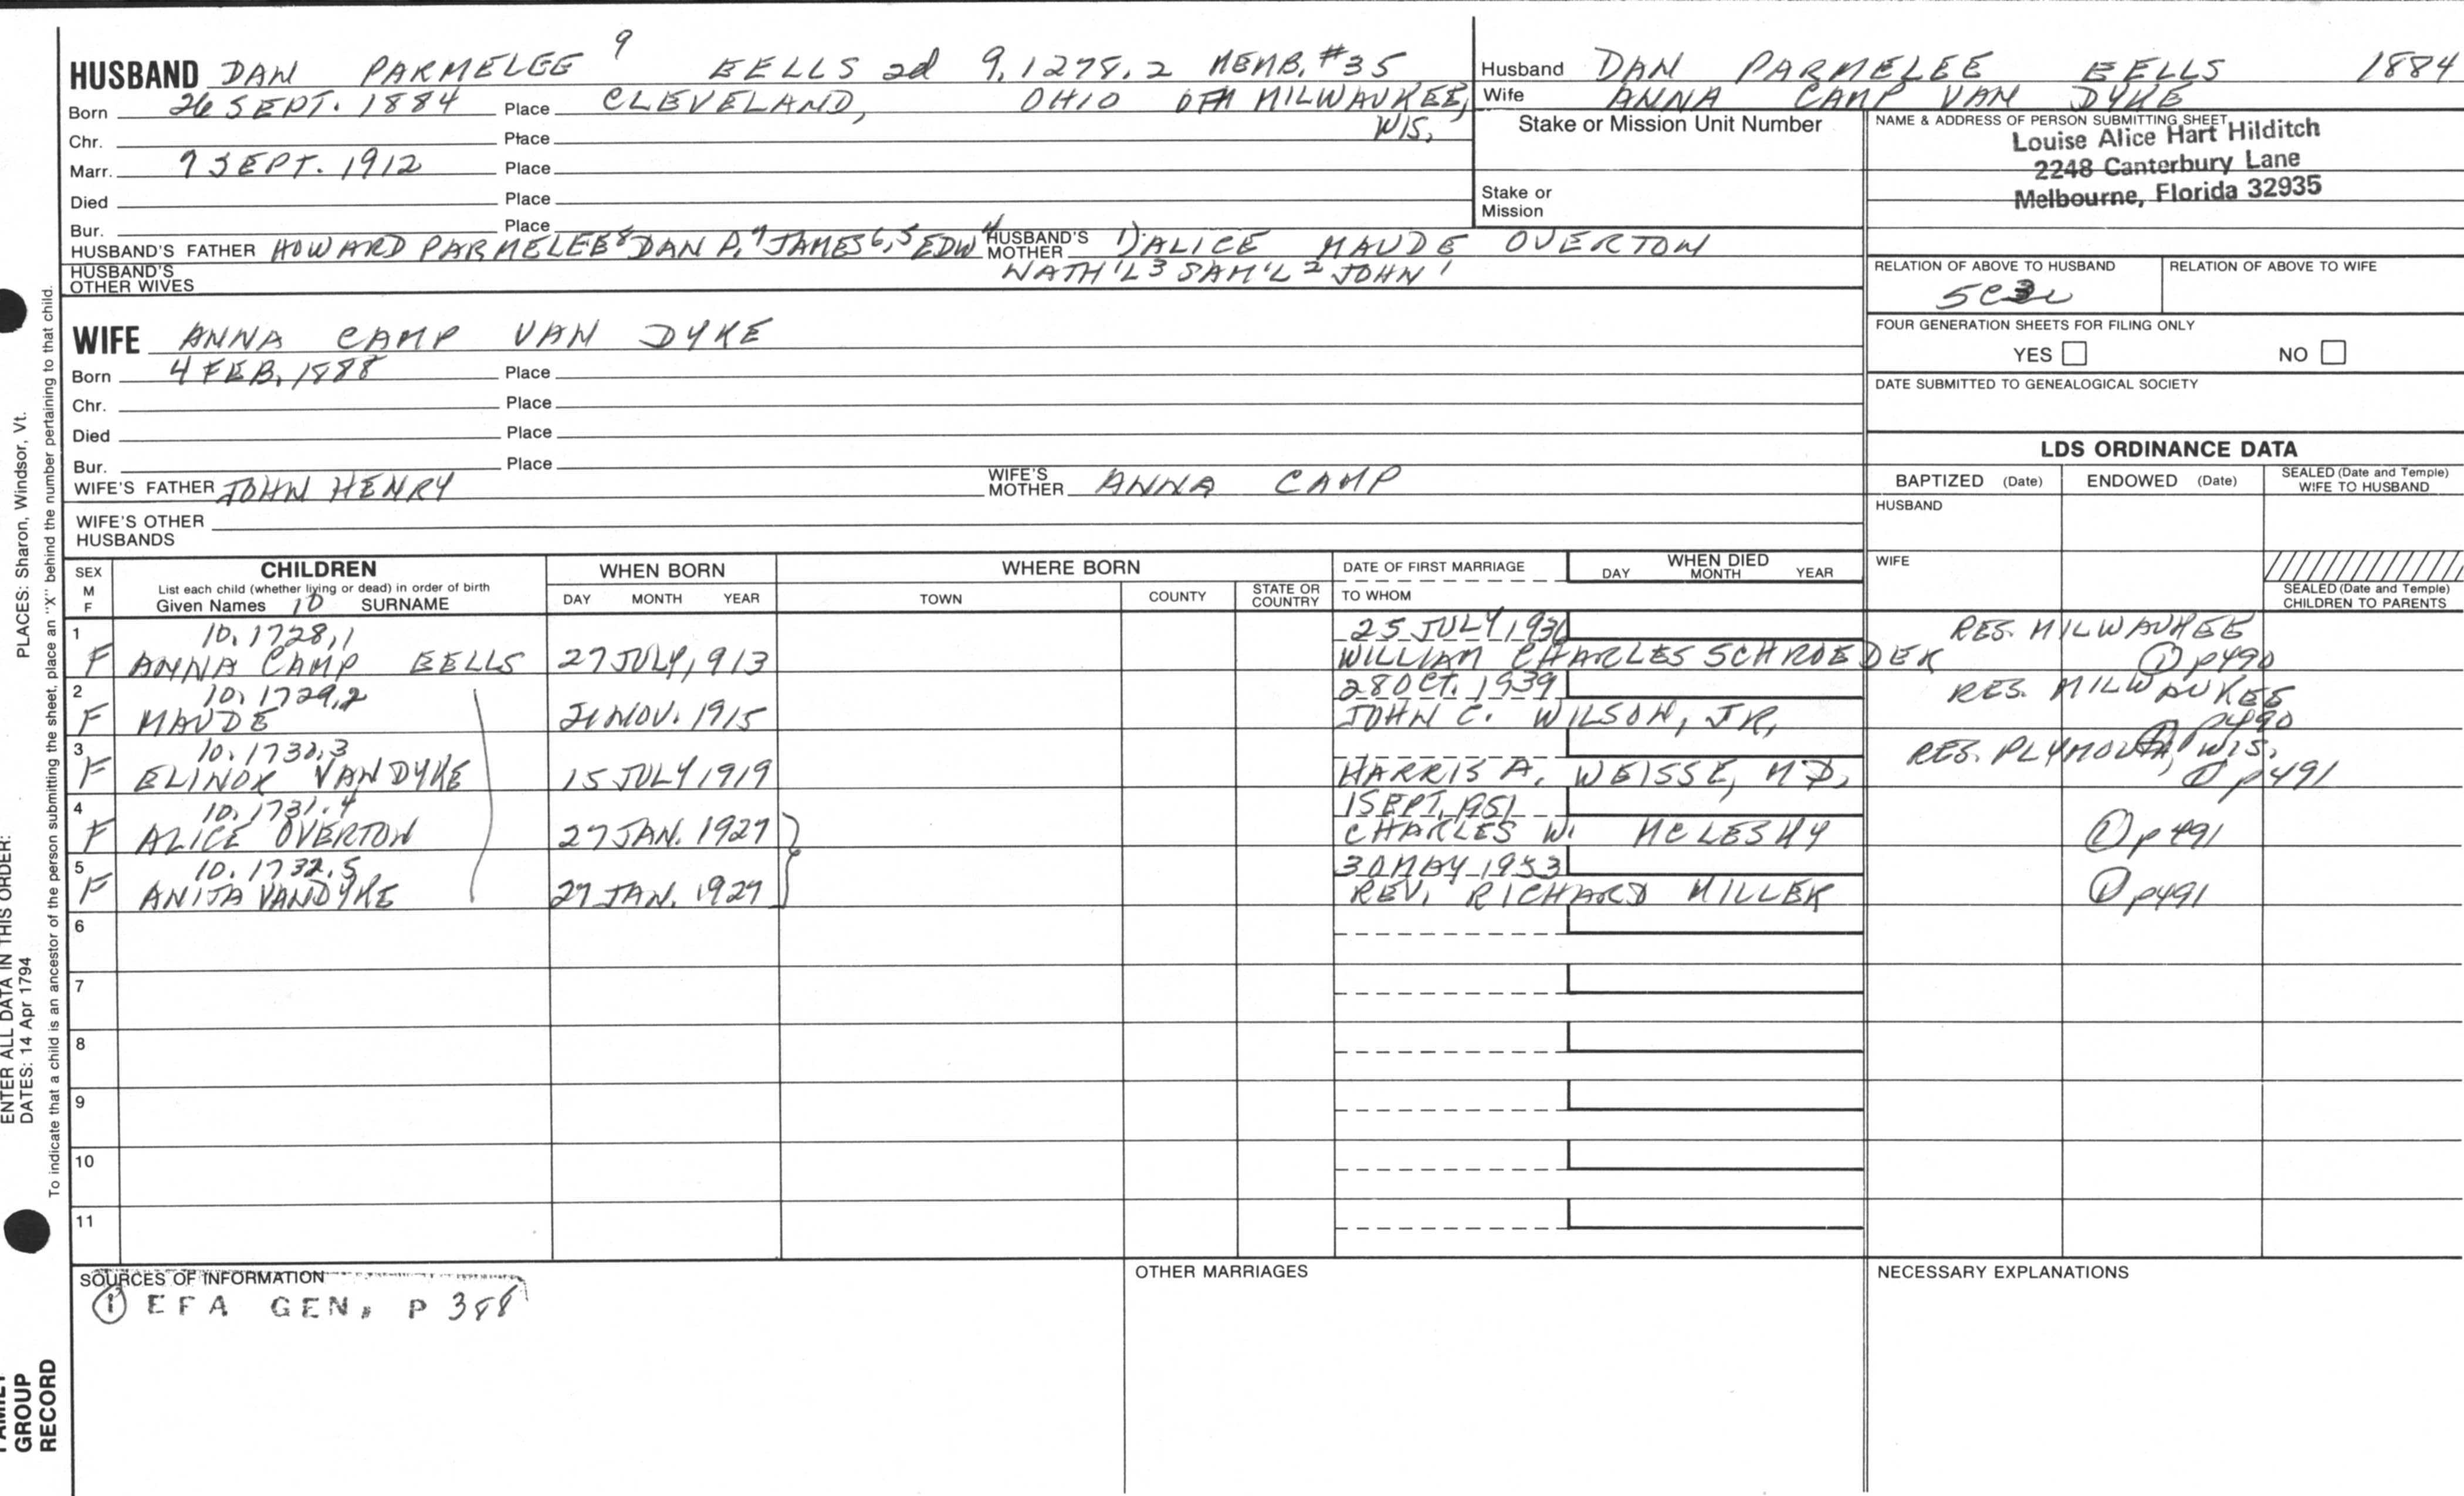 HUSBAND DAN PARMELEE 9 EELLS 2d 9.1278.2 MEMB. #35
Born 26 SEPT. 1884 Place CLEVELAND, OHIO OFM MILWAUKEE, WIS.
Chr. Place
Marr. 7 SEPT. 1912 Place
Died Place
Bur. Place
HUSBAND'S FATHER HOWARD PARMELEE 8 DAN P. 7 JAMES 6,5 EDW 4 HUSBAND'S MOTHER 1) ALICE MAUDE OVERTON
NATH'L 3 SAM'L 2 JOHN 1
HUSBAND'S OTHER WIVES
Husband DAN PARMELEE EELLS 1884
Wife ANNA CAMP VAN DYKE
Stake or Mission Unit Number
Stake or Mission
NAME & ADDRESS OF PERSON SUBMITTING SHEET
Louise Alice Hart Hilditch
2248 Canterbury Lane
Melbourne, Florida 32935
RELATION OF ABOVE TO HUSBAND RELATION OF ABOVE TO WIFE
FOUR GENERATION SHEETS FOR FILING ONLY
YES NO
DATE SUBMITTED TO GENEALOGICAL SOCIETY
WIFE ANNA CAMP VAN DYKE
Born 4 FEB. 1888 Place
Chr. Place
Died Place
Bur. Place
WIFE'S FATHER JOHN HENRY WIFE'S MOTHER ANNA CAMP
WIFE'S OTHER HUSBANDS
LDS ORDINANCE DATA
BAPTIZED (Date) ENDOWED (Date) SEALED (Date and Temple) WIFE TO HUSBAND
HUSBAND
WIFE
SEALED (Date and Temple) CHILDREN TO PARENTS
SEX M F CHILDREN WHEN BORN WHERE BORN DATE OF FIRST MARRIAGE WHEN DIED
List each child (whether living or dead) in order of birth
Given Names 10 SURNAME DAY MONTH YEAR TOWN COUNTY STATE OR COUNTRY TO WHOM DAY MONTH YEAR
1 10.1728.1 25 JULY, 1936 RES. MILWAUKEE
F ANNA CAMP EELLS 27 JULY, 913 WILLIAM CHARLES SCHROEDER 1 p490
2 10.1729.2 28 OCT. 1939 RES. MILWAUKEE
F MAUDE 21 NOV. 1915 JOHN C. WILSON, JR. 1 p490
3 10.1730.3 RES. PLYMOUTH, WIS.
F ELINOR VAN DYKE 15 JULY 1919 HARRIS A. WEISSE, M D, 1 p491
4 10.1731.4 1 SEPT, 1951
F ALICE OVERTON 27 JAN. 1927 CHARLES W. MCLESKY 1 p491
5 10.1732.5 30 MAY 1953
F ANITA VANDYKE 27 JAN. 1927 REV. RICHARD MILLER 1 p491
6
7
8
9
10
11
SOURCES OF INFORMATION OTHER MARRIAGES NECESSARY EXPLANATIONS
1 EFA GEN. P 388
PLACES: Sharon, Windsor, Vt.
ENTER ALL DATA IN THIS ORDER:
DATES: 14 Apr 1794
To indicate that a child is an ancestor of the person submitting the sheet, place an "X" behind the number pertaining to that child.
FAMILY
GROUP
RECORD